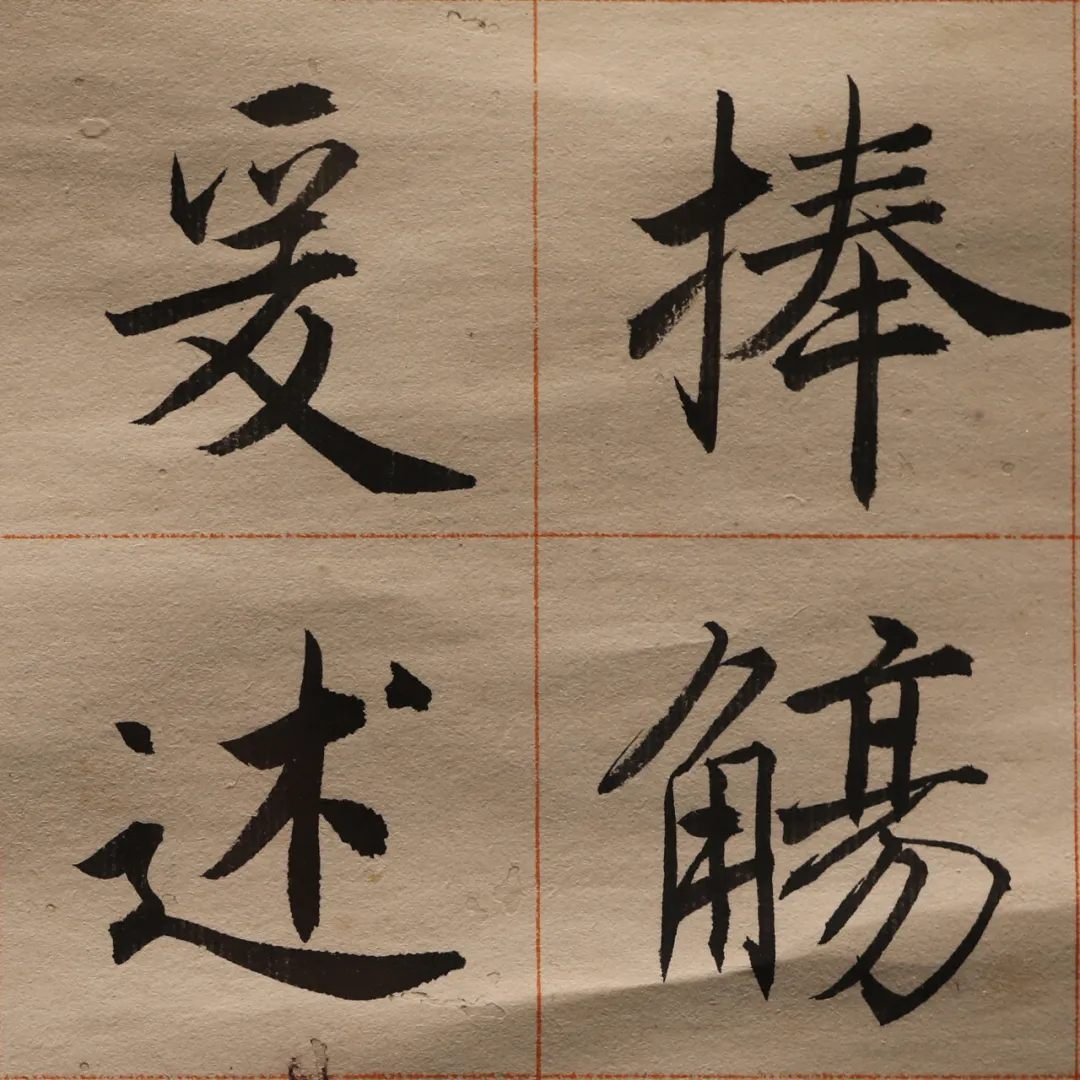 捧觴
爰述